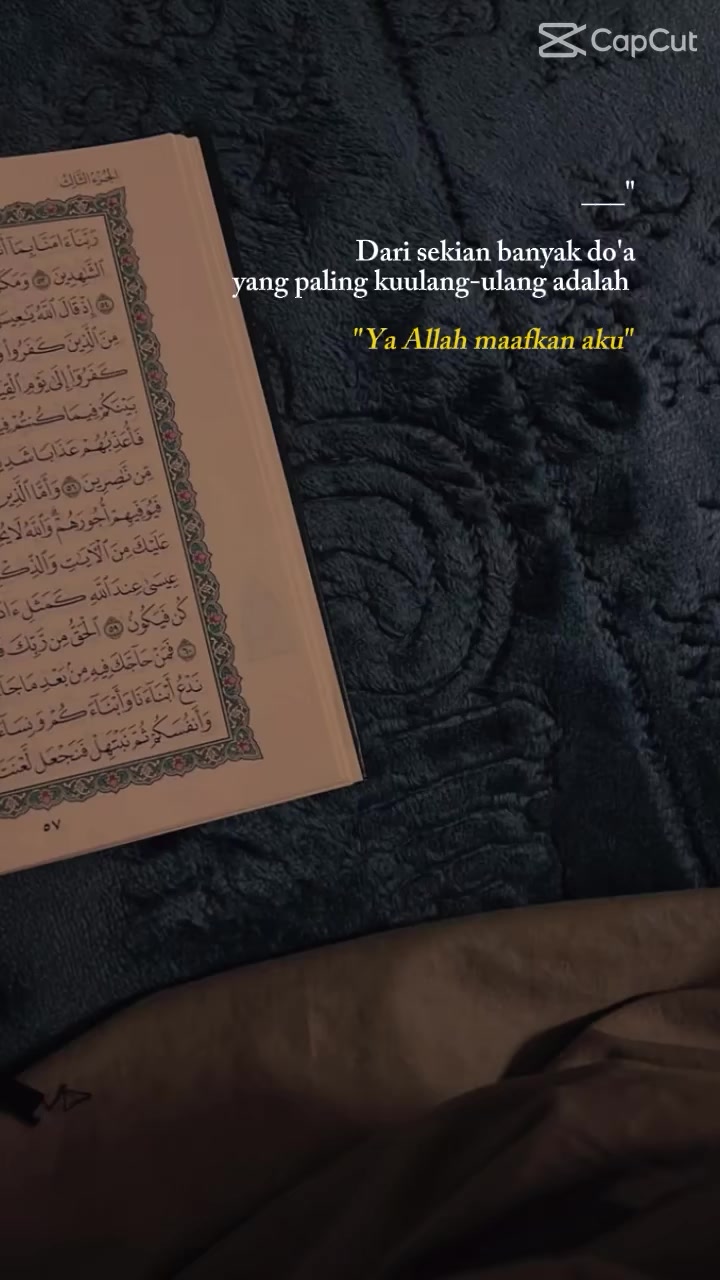 CapCut
___"
Dari sekian banyak do'a
yang paling kuulang-ulang adalah
"Ya Allah maafkan aku"
الجزء الثالث
رَبَّنَآ ءَامَنَّا بِمَآ
ٱلشَّٰهِدِينَ ٥٣
٥٤ إِذۡ قَالَ ٱللَّهُ يَٰعِيسَىٰٓ
مِنَ ٱلَّذِينَ كَفَرُواْ
كَفَرُوٓاْ إِلَىٰ يَوۡمِ
بَيۡنَكُمۡ فِيمَا كُنتُمۡ
فَأُعَذِّبُهُمۡ عَذَابٗا
مِّن نَّٰصِرِينَ ٥٦ وَأَمَّا ٱلَّذِينَ
فَيُوَفِّيهِمۡ أُجُورَهُمۡۗ وَٱللَّهُ لَا
عَلَيۡكَ مِنَ ٱلۡأٓيَٰتِ
عِيسَىٰ عِندَ ٱللَّهِ كَمَثَلِ
كُن فَيَكُونُ ٥٩ ٱلۡحَقُّ مِن رَّبِّكَ
٦٠ فَمَنۡ حَآجَّكَ فِيهِ مِنۢ بَعۡدِ مَا
نَدۡعُ أَبۡنَآءَنَا وَأَبۡنَآءَكُمۡ
وَأَنفُسَكُمۡ ثُمَّ نَبۡتَهِلۡ فَنَجۡعَل
٥٧